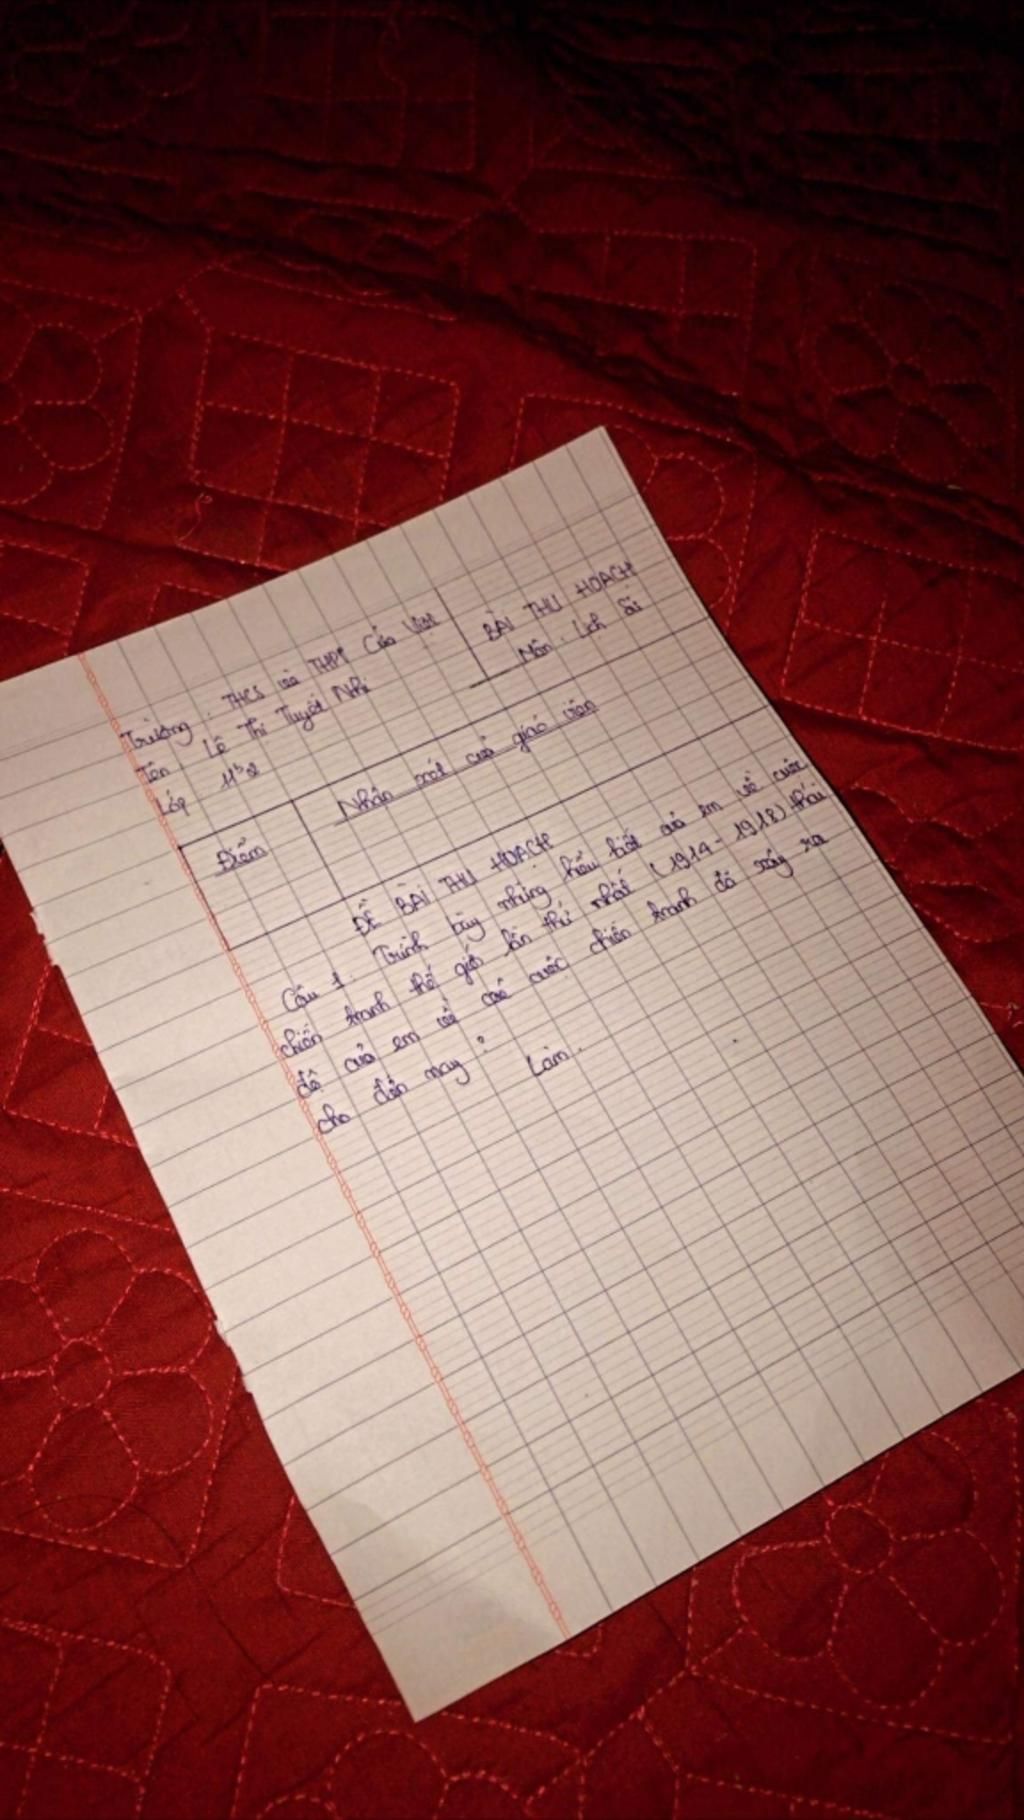 Trường : THCS và THPT Cửa Việt
BÀI THU HOẠCH
Tên Lê Thị Tuyết Nhi
Môn : Lịch Sử
Lớp 11b2
Điểm
Nhận xét của giáo viên
ĐỀ BÀI THU HOẠCH
Câu 1: Trình bày những hiểu biết của em về cuộc
chiến tranh thế giới lần thứ nhất (1914 - 1918) thái
độ của em về các cuộc chiến tranh đã xảy ra
cho đến nay ?
Làm.